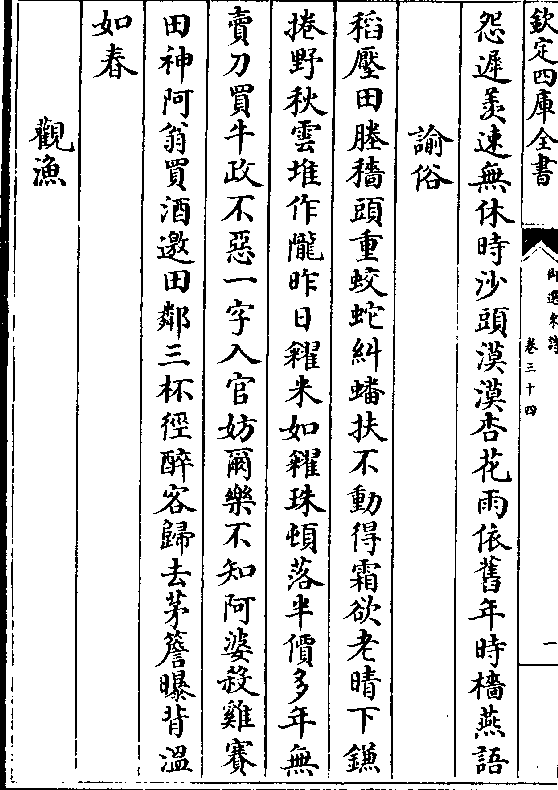 欽定四庫全書
御選宋詩
卷三十四
一
怨遲羨速無休時沙頭漠漠杏花雨依舊年時檣燕語
諭俗
稻壓田塍穡頭重蛟蛇糾蟠扶不動得霜欲老晴下鎌
捲野秋雲堆作隴昨日糴米如糴珠頓落半價多年無
賣刀買牛政不惡一字入官妨爾樂不知阿婆殺雞賽
田神阿翁買酒邀田鄰三杯徑醉客歸去茅簷曝背溫
如春
觀漁